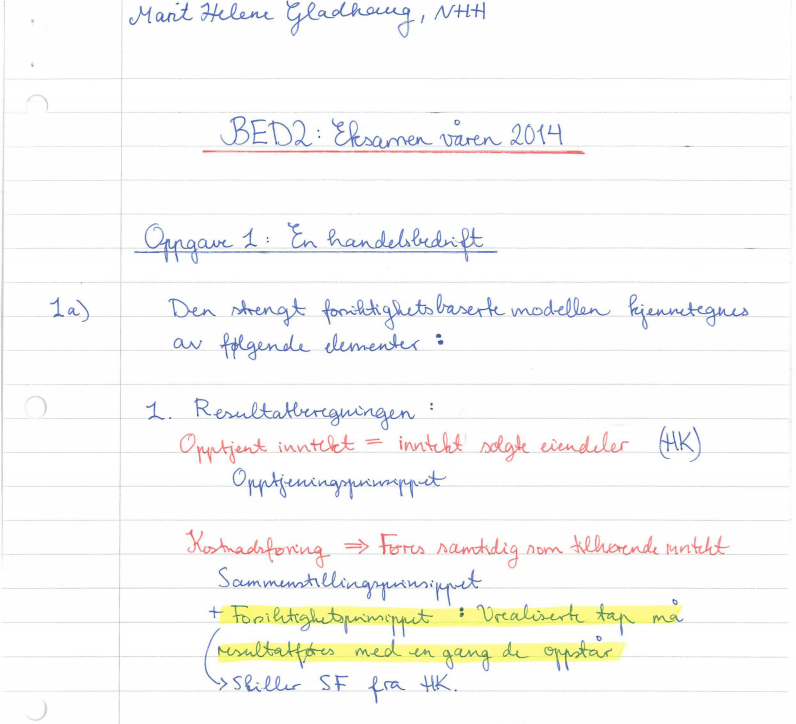 Marit Helene Gladhaug, NHH
BED2: Eksamen våren 2014
Oppgave 1: En handelsbedrift
1a) Den strengt forsiktighetsbaserte modellen kjennetegnes
av følgende elementer :
1. Resultatberegningen :
Opptjent inntekt = inntekt solgte eiendeler (HK)
Opptjeningsprinsippet
Kostnadsføring ⇒ Føres samtidig som tilhørende inntekt
Sammenstillingsprinsippet
+ Forsiktighetsprinsippet : Urealiserte tap må
resultatføres med en gang de oppstår
↳ Skiller SF fra HK.